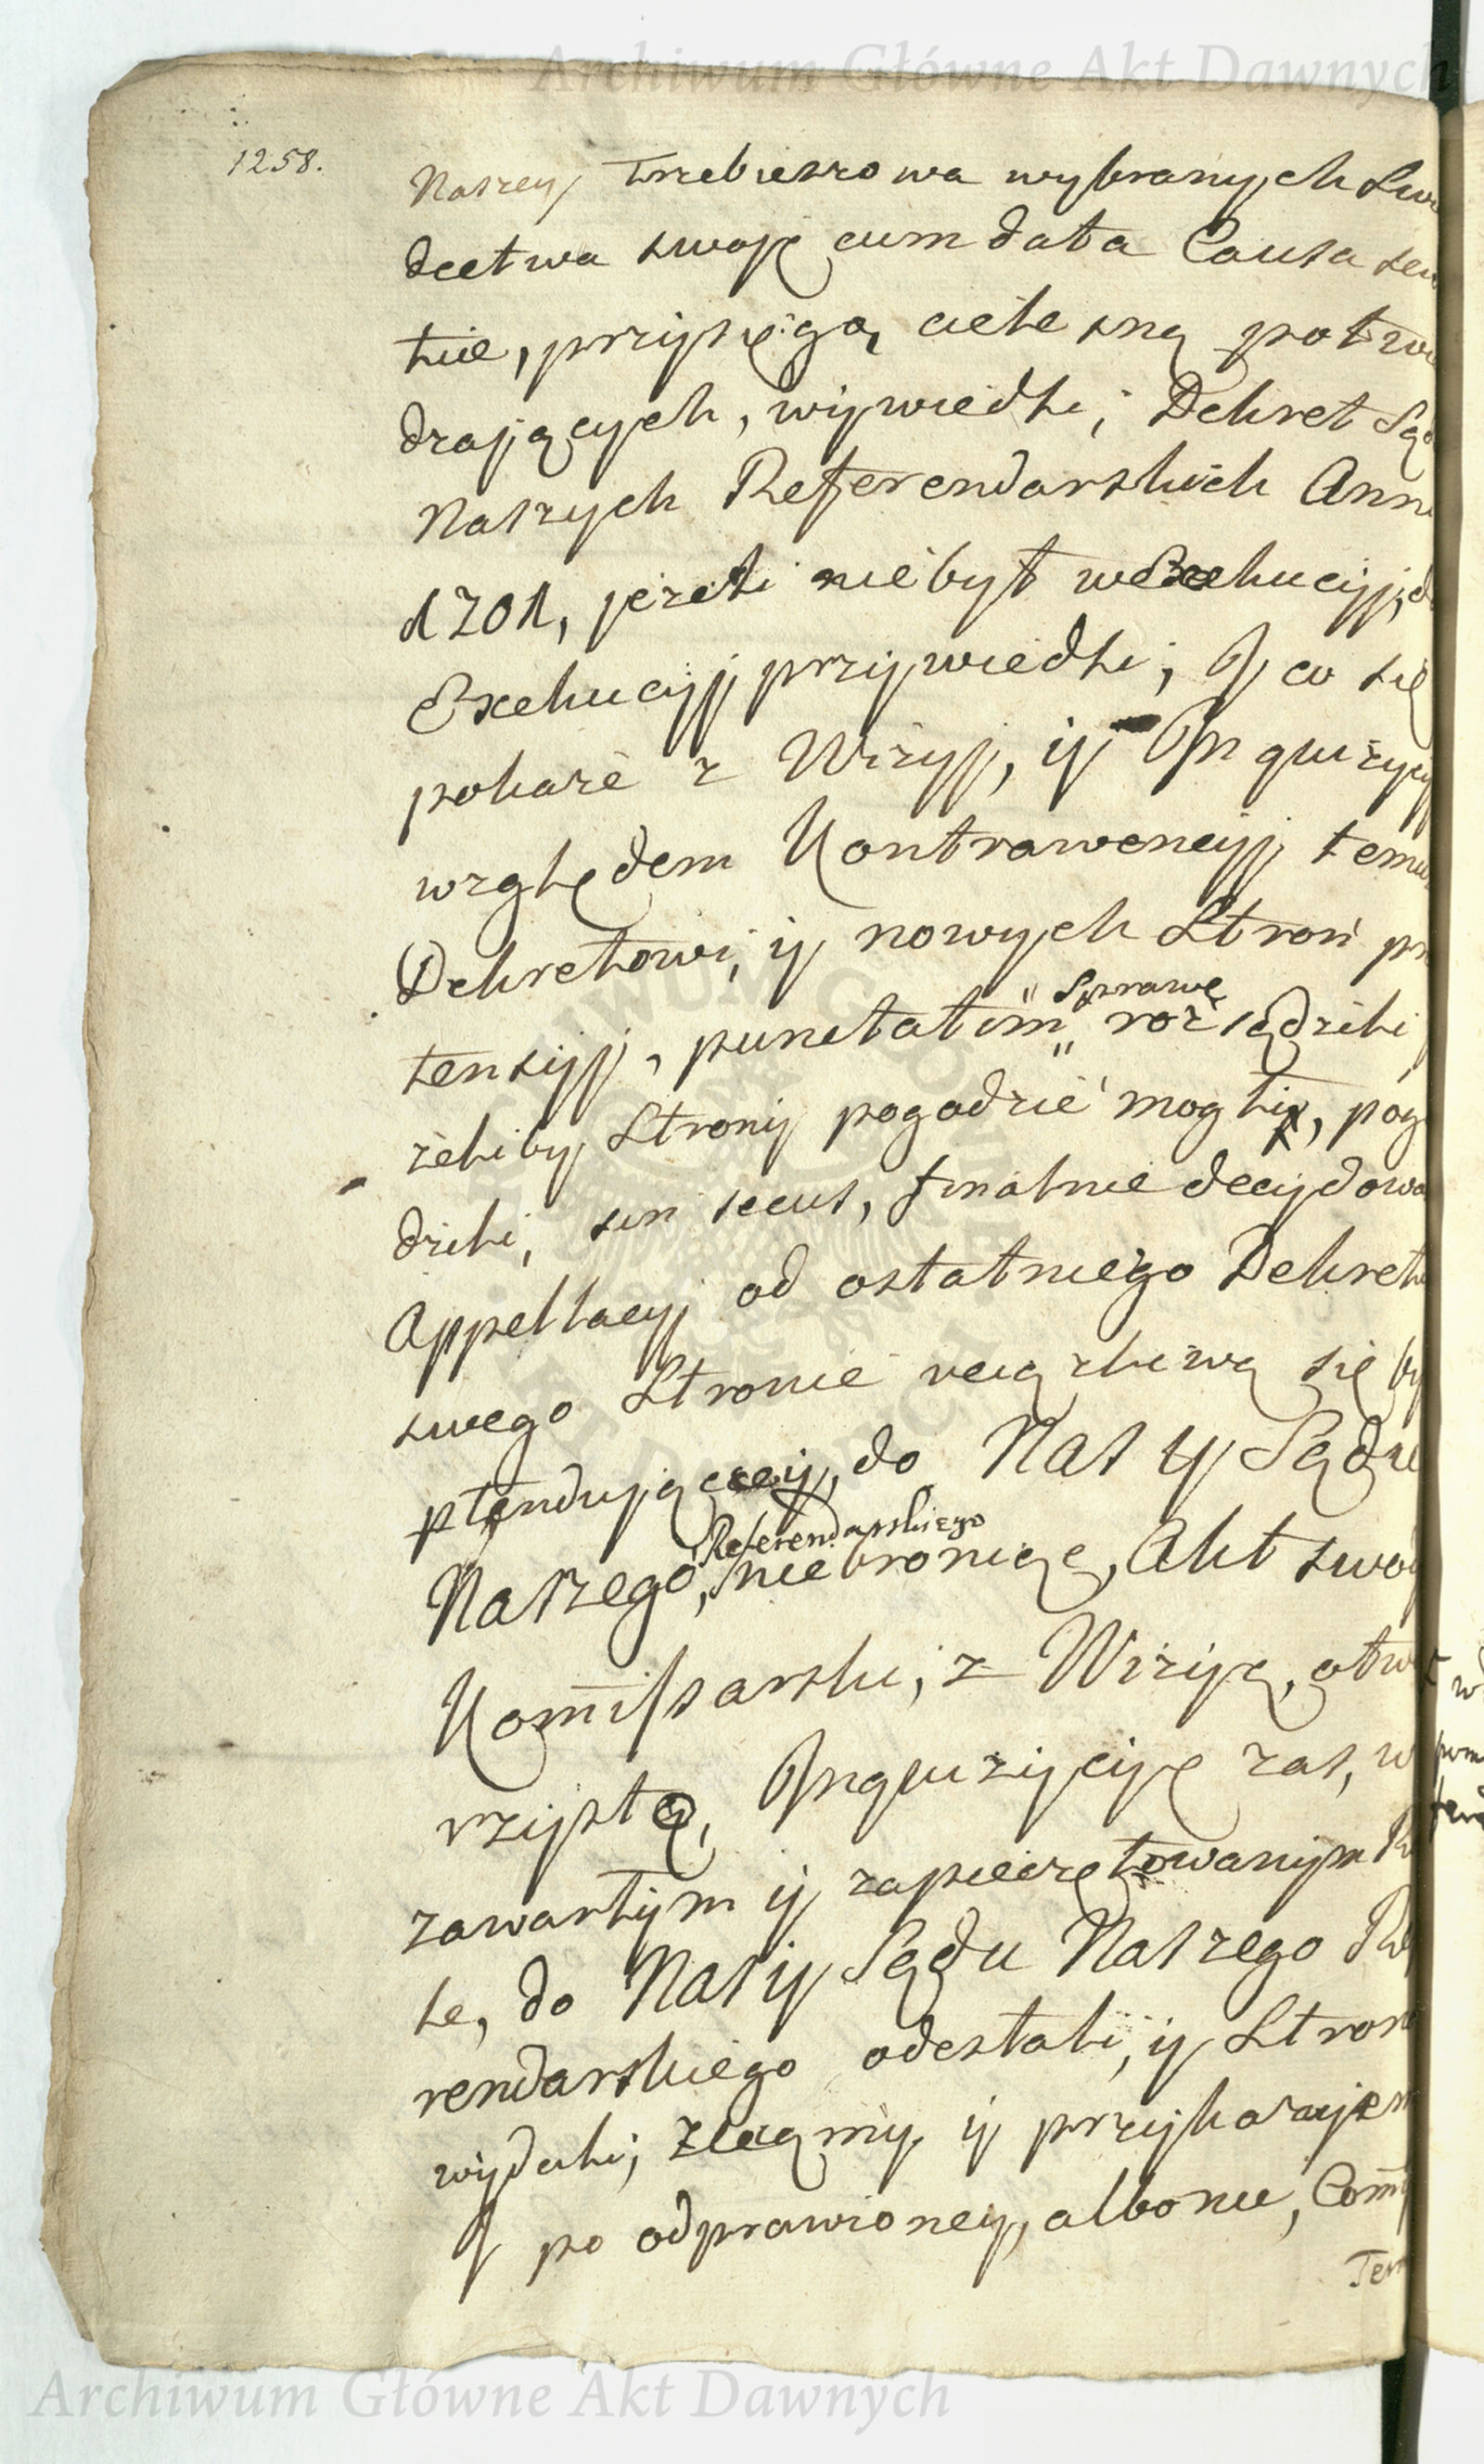 Archiwum Główne Akt Dawnych
1258.
Naszey Trzebieszowa wybranych Swia
dectwa swoje cum data Causa scien
tiæ, przysięgą cielesną potwier
dzających, wywiedli; Dekret Sąd
Naszych Referendarskich Anno
1701, jeżeli niebył w Exekucyji, do
Exekucyji przywiedli; J co się
pokaże z Wizyji, y Jnquizycyi
względem Kontrawencyji temu
Dekretowi, y nowych Stron pre
tensyji, punctatim „Sprawę„ rozsądzili
żeliby Strony pogodzić mogli, pogo
dzili, sin secus, finalnie decydowa
Appellacyi od ostatniego Dekretu
swego Stronie uciążliwą się by
ptendującey, do Nas y Sądu
Naszego, Referendarskiego niebroniąc, Akt swoy
Kom̃issarski, z Wizyą, otw
rzystą, Jnquizycyję zaś, w
zawartym y zapieczętowanym Ro
le, do Nas y Sądu Naszego Refe
rendarskiego odesłali, y Strono
wydali; Zlecamy y przykazujem
J po odprawioney, albo nie, Com̃
Ter
Archiwum Główne Akt Dawnych